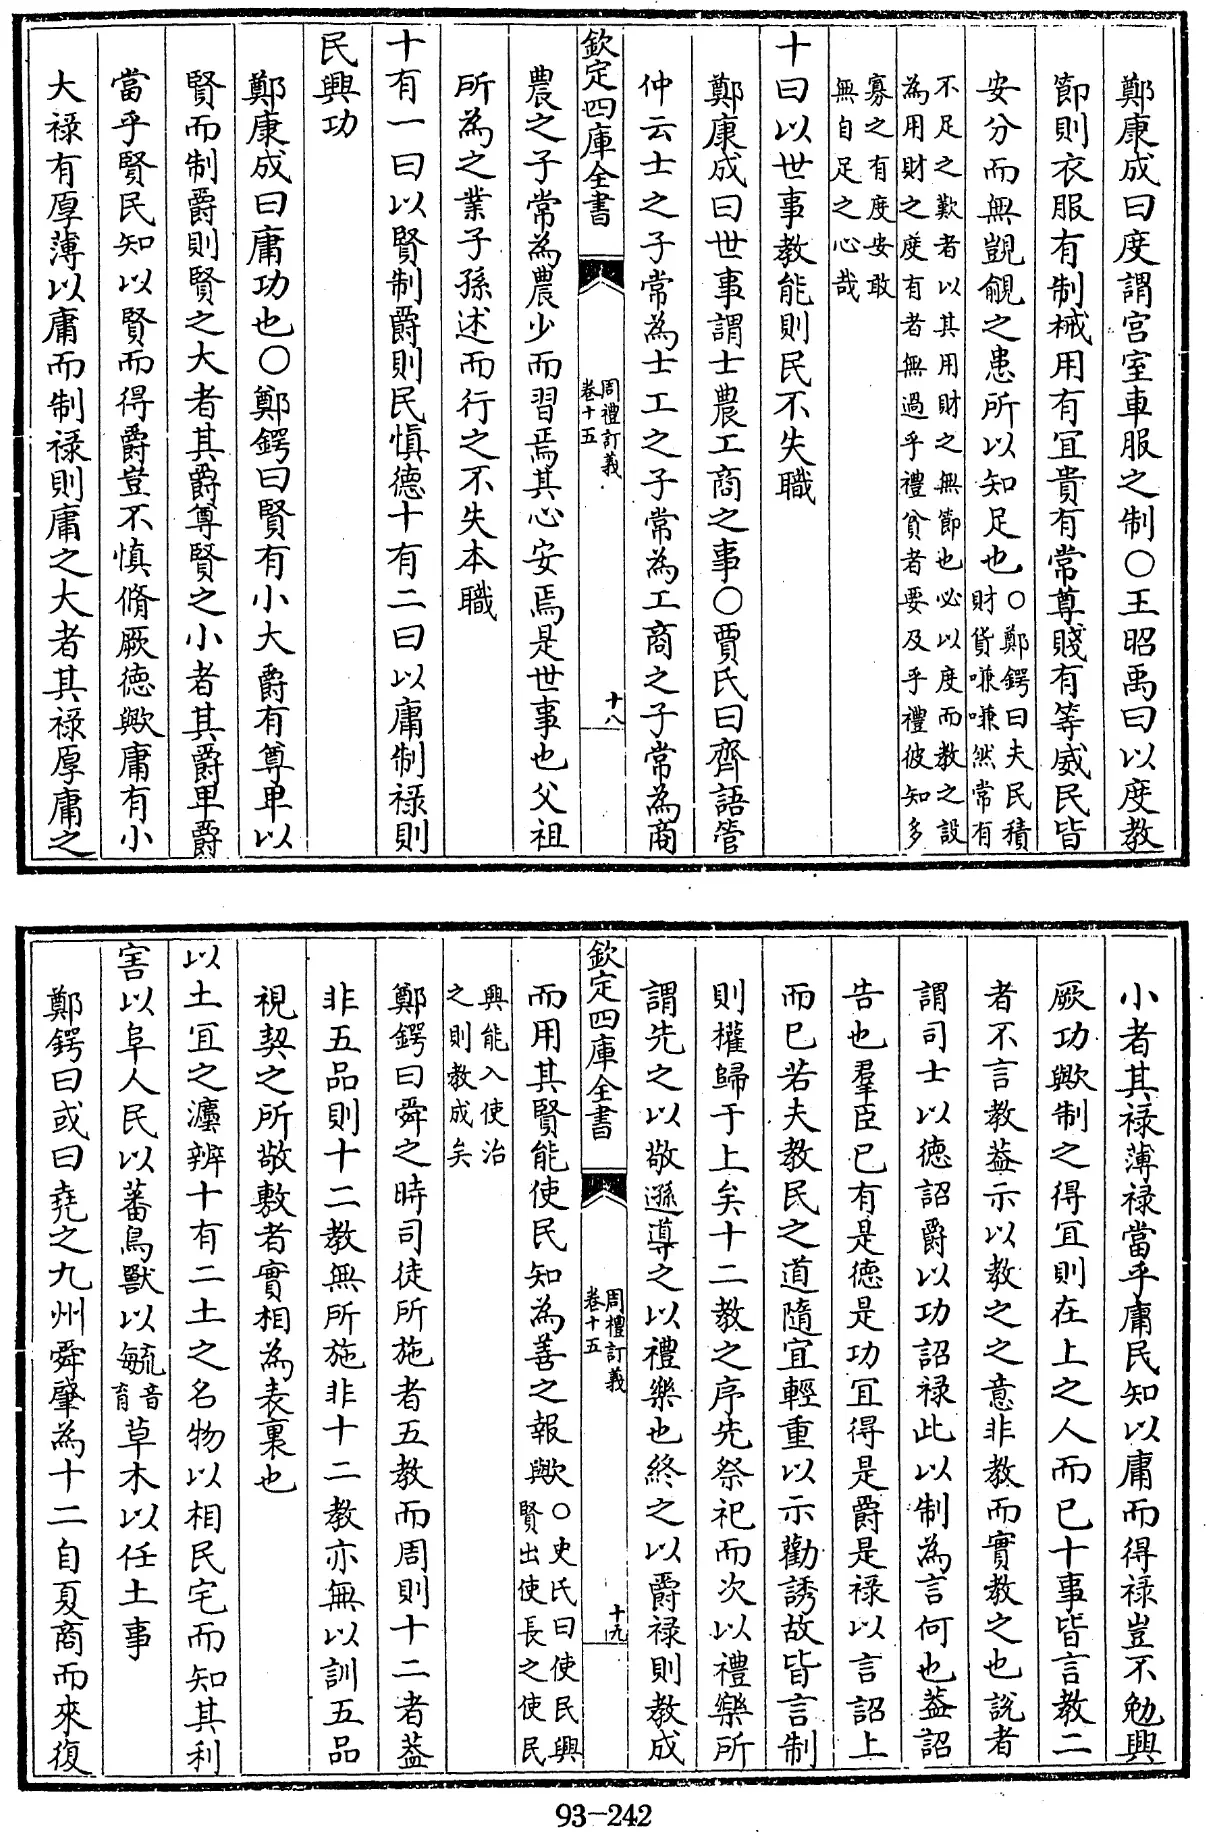 鄭康成曰度謂宫室車服之制○王昭禹曰以度教
節則衣服有制械用有宜貴有常尊賤有等威民皆
安分而無覬覦之患所以知足也○鄭鍔曰夫民積
財貨嗛嗛然常有
不足之歎者以其用財之無節也必以度而教之設
為用財之度有者無過乎禮貧者要及乎禮彼知多
寡之有度安敢
無自足之心哉
十曰以世事教能則民不失職
鄭康成曰世事謂士農工商之事○賈氏曰齊語管
仲云士之子常為士工之子常為工商之子常為商
欽定四庫全書
周禮訂義
卷十五
十八
農之子常為農少而習焉其心安焉是世事也父祖
所為之業子孫述而行之不失本職
十有一曰以賢制爵則民慎德十有二曰以庸制禄則
民興功
鄭康成曰庸功也○鄭鍔曰賢有小大爵有尊卑以
賢而制爵則賢之大者其爵尊賢之小者其爵卑爵
當乎賢民知以賢而得爵豈不慎脩厥徳歟庸有小
大禄有厚薄以庸而制禄則庸之大者其禄厚庸之
小者其禄薄禄當乎庸民知以庸而得禄豈不勉興
厥功歟制之得宜則在上之人而已十事皆言教二
者不言教葢示以教之之意非教而實教之也說者
謂司士以徳詔爵以功詔禄此以制為言何也葢詔
告也羣臣已有是徳是功宜得是爵是禄以言詔上
而已若夫教民之道隨宜輕重以示勸誘故皆言制
則權歸于上矣十二教之序先祭祀而次以禮樂所
謂先之以敬遜導之以禮樂也終之以爵禄則教成
欽定四庫全書
周禮訂義
卷十五
十九
而用其賢能使民知為善之報歟○史氏曰使民興
賢出使長之使民
興能入使治
之則教成矣
鄭鍔曰舜之時司徒所施者五教而周則十二者葢
非五品則十二教無所施非十二教亦無以訓五品
視契之所敬敷者實相為表裏也
以土宜之灋辨十有二土之名物以相民宅而知其利
害以阜人民以蕃鳥獸以毓音育草木以任土事
鄭鍔曰或曰堯之九州舜肇為十二自夏商而來復
93-242